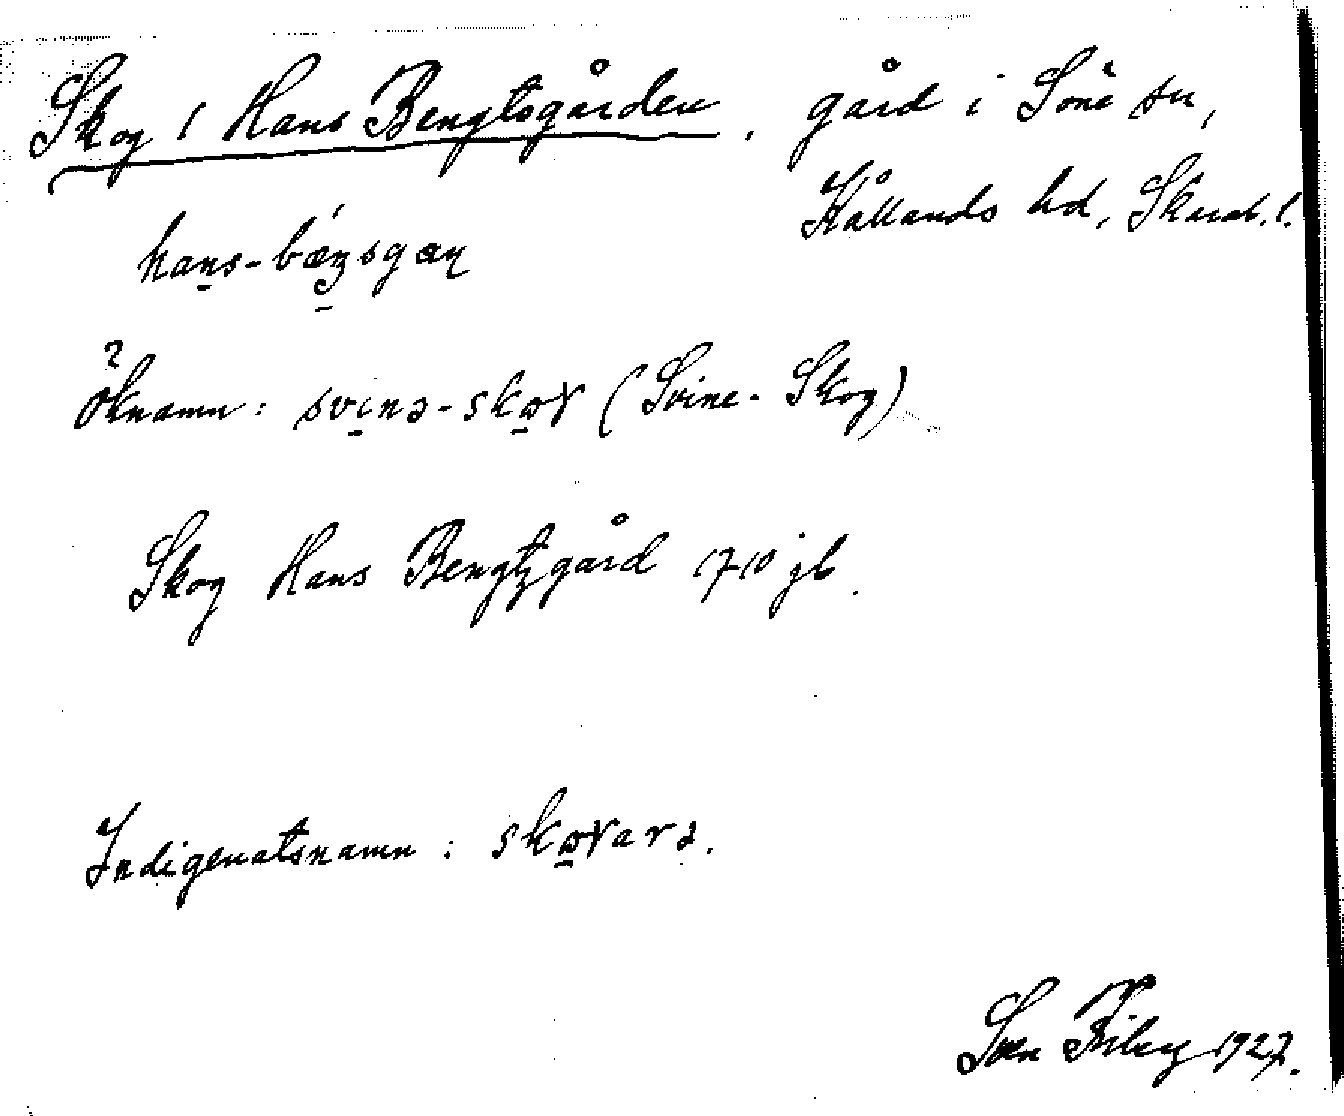 Skog, Hans Bengtsgården, gård i Söne sn,
Kållands hd, Skarab. l.
hans-bæŋsgaɳ
Öknamn: svinə-skoɤ (Svine-Skog)
Skog Hans Bengtzgård 1710 jb.
Indigenatsnamn: skoɤarə.
1927.